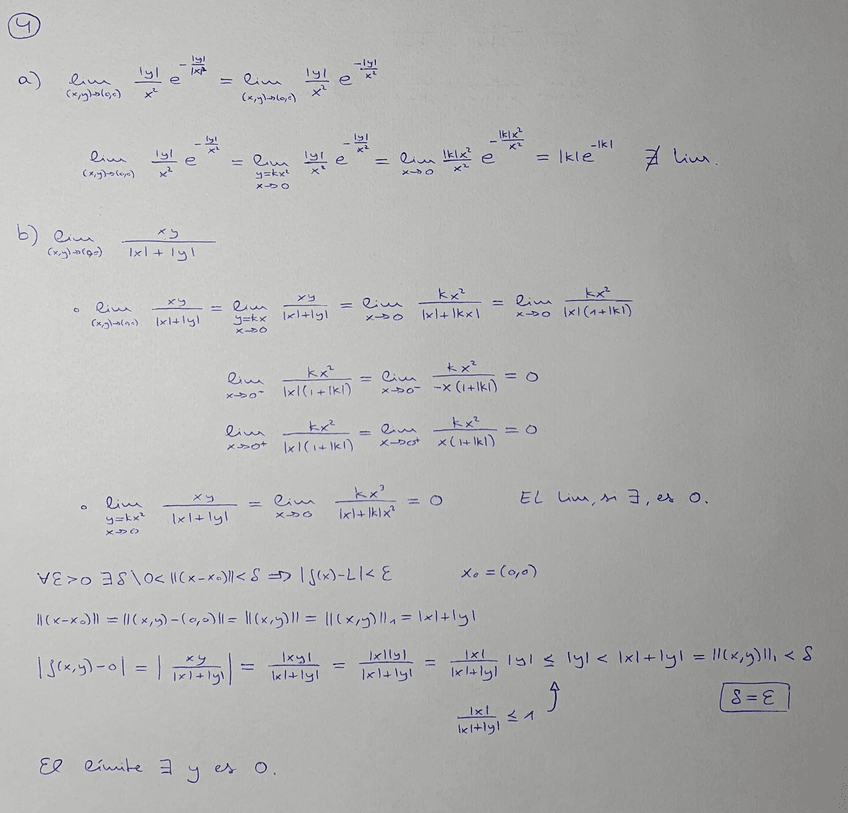 4
a) lim (x,y)→(0,0) |y|/x² e^(-|y|/|x|²) = lim (x,y)→(0,0) |y|/x² e^(-|y|/x²)
lim (x,y)→(0,0) |y|/x² e^(-|y|/x²) = lim y=kx² x→0 |y|/x² e^(-|y|/x²) = lim x→0 |k|x²/x² e^(-|k|x²/x²) = |k|e^(-|k|) ∄ lim.
b) lim (x,y)→(0,0) xy/(|x|+|y|)
∘ lim (x,y)→(0,0) xy/(|x|+|y|) = lim y=kx x→0 xy/(|x|+|y|) = lim x→0 kx²/(|x|+|kx|) = lim x→0 kx²/(|x|(1+|k|))
lim x→0⁻ kx²/(|x|(1+|k|)) = lim x→0⁻ kx²/(-x(1+|k|)) = 0
lim x→0⁺ kx²/(|x|(1+|k|)) = lim x→0⁺ kx²/(x(1+|k|)) = 0
∘ lim y=kx² x→0 xy/(|x|+|y|) = lim x→0 kx³/(|x|+|k|x²) = 0 EL lim, si ∃, es 0.
∀ε>0 ∃δ \ 0<||(x-x₀)||<δ ⇒ |f(x)-L|<ε x₀=(0,0)
||(x-x₀)|| = ||(x,y)-(0,0)|| = ||(x,y)|| = ||(x,y)||₁ = |x|+|y|
|f(x,y)-0| = |xy/(|x|+|y|)| = |xy|/(|x|+|y|) = |x||y|/(|x|+|y|) = |x|/(|x|+|y|) |y| ≤ |y| < |x|+|y| = ||(x,y)||₁ < δ
|x|/(|x|+|y|) ≤ 1 δ=ε
El límite ∃ y es 0.